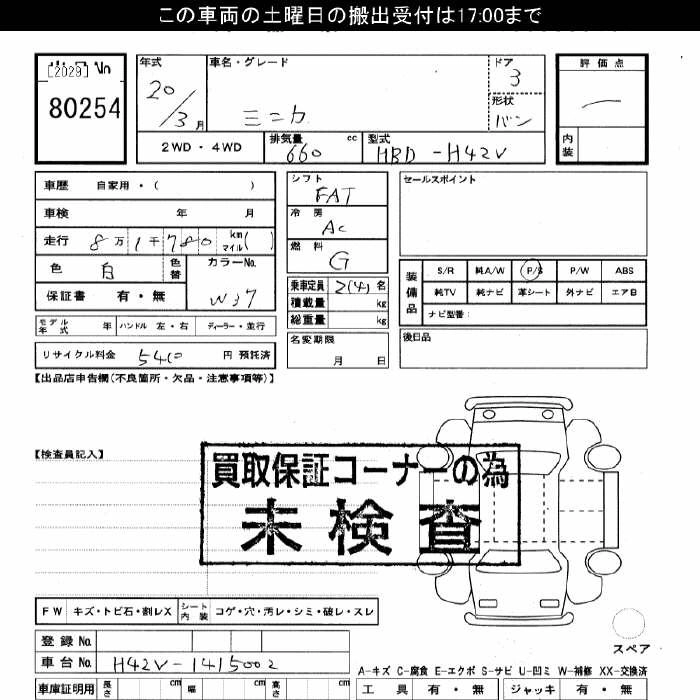 この車両の土曜日の搬出受付は17:00まで
[2029]
80254
年式 20/3月
車名・グレード ミニカ
ドア 3
形状 バン
評価点
内装
2WD・4WD
排気量 660 cc
型式 HBD-H42V
車歴 自家用・( )
車検 年 月
走行 8万1千780 km マイル( )
色 白 色替
カラーNo. W37
保証書 有・無
モデル年式 年 ハンドル 左・右 ディーラー・並行
リサイクル料金 5410 円 預託済
シフト FAT
冷房 AC
燃料 G
乗車定員 2(4)名
積載量 kg
総重量 kg
名変期限 月 日
セールスポイント
装備品
S/R 純A/W P/S P/W ABS
純TV 純ナビ 革シート 外ナビ エアB
ナビ型番:
後日品
【出品店申告欄(不良箇所・欠品・注意事項等)】
【検査員記入】
買取保証コーナーの為
未検査
FW キズ・トビ石・割レX シート内装 コゲ・穴・汚レ・シミ・破レ・スレ
スペア
登録No.
車台No. H42V-1415002
A-キズ C-腐食 E-エクボ S-サビ U-凹ミ W-補修 XX-交換済
車庫証明用 長さ cm 幅 cm 高さ cm
工具 有・無 ジャッキ 有・無